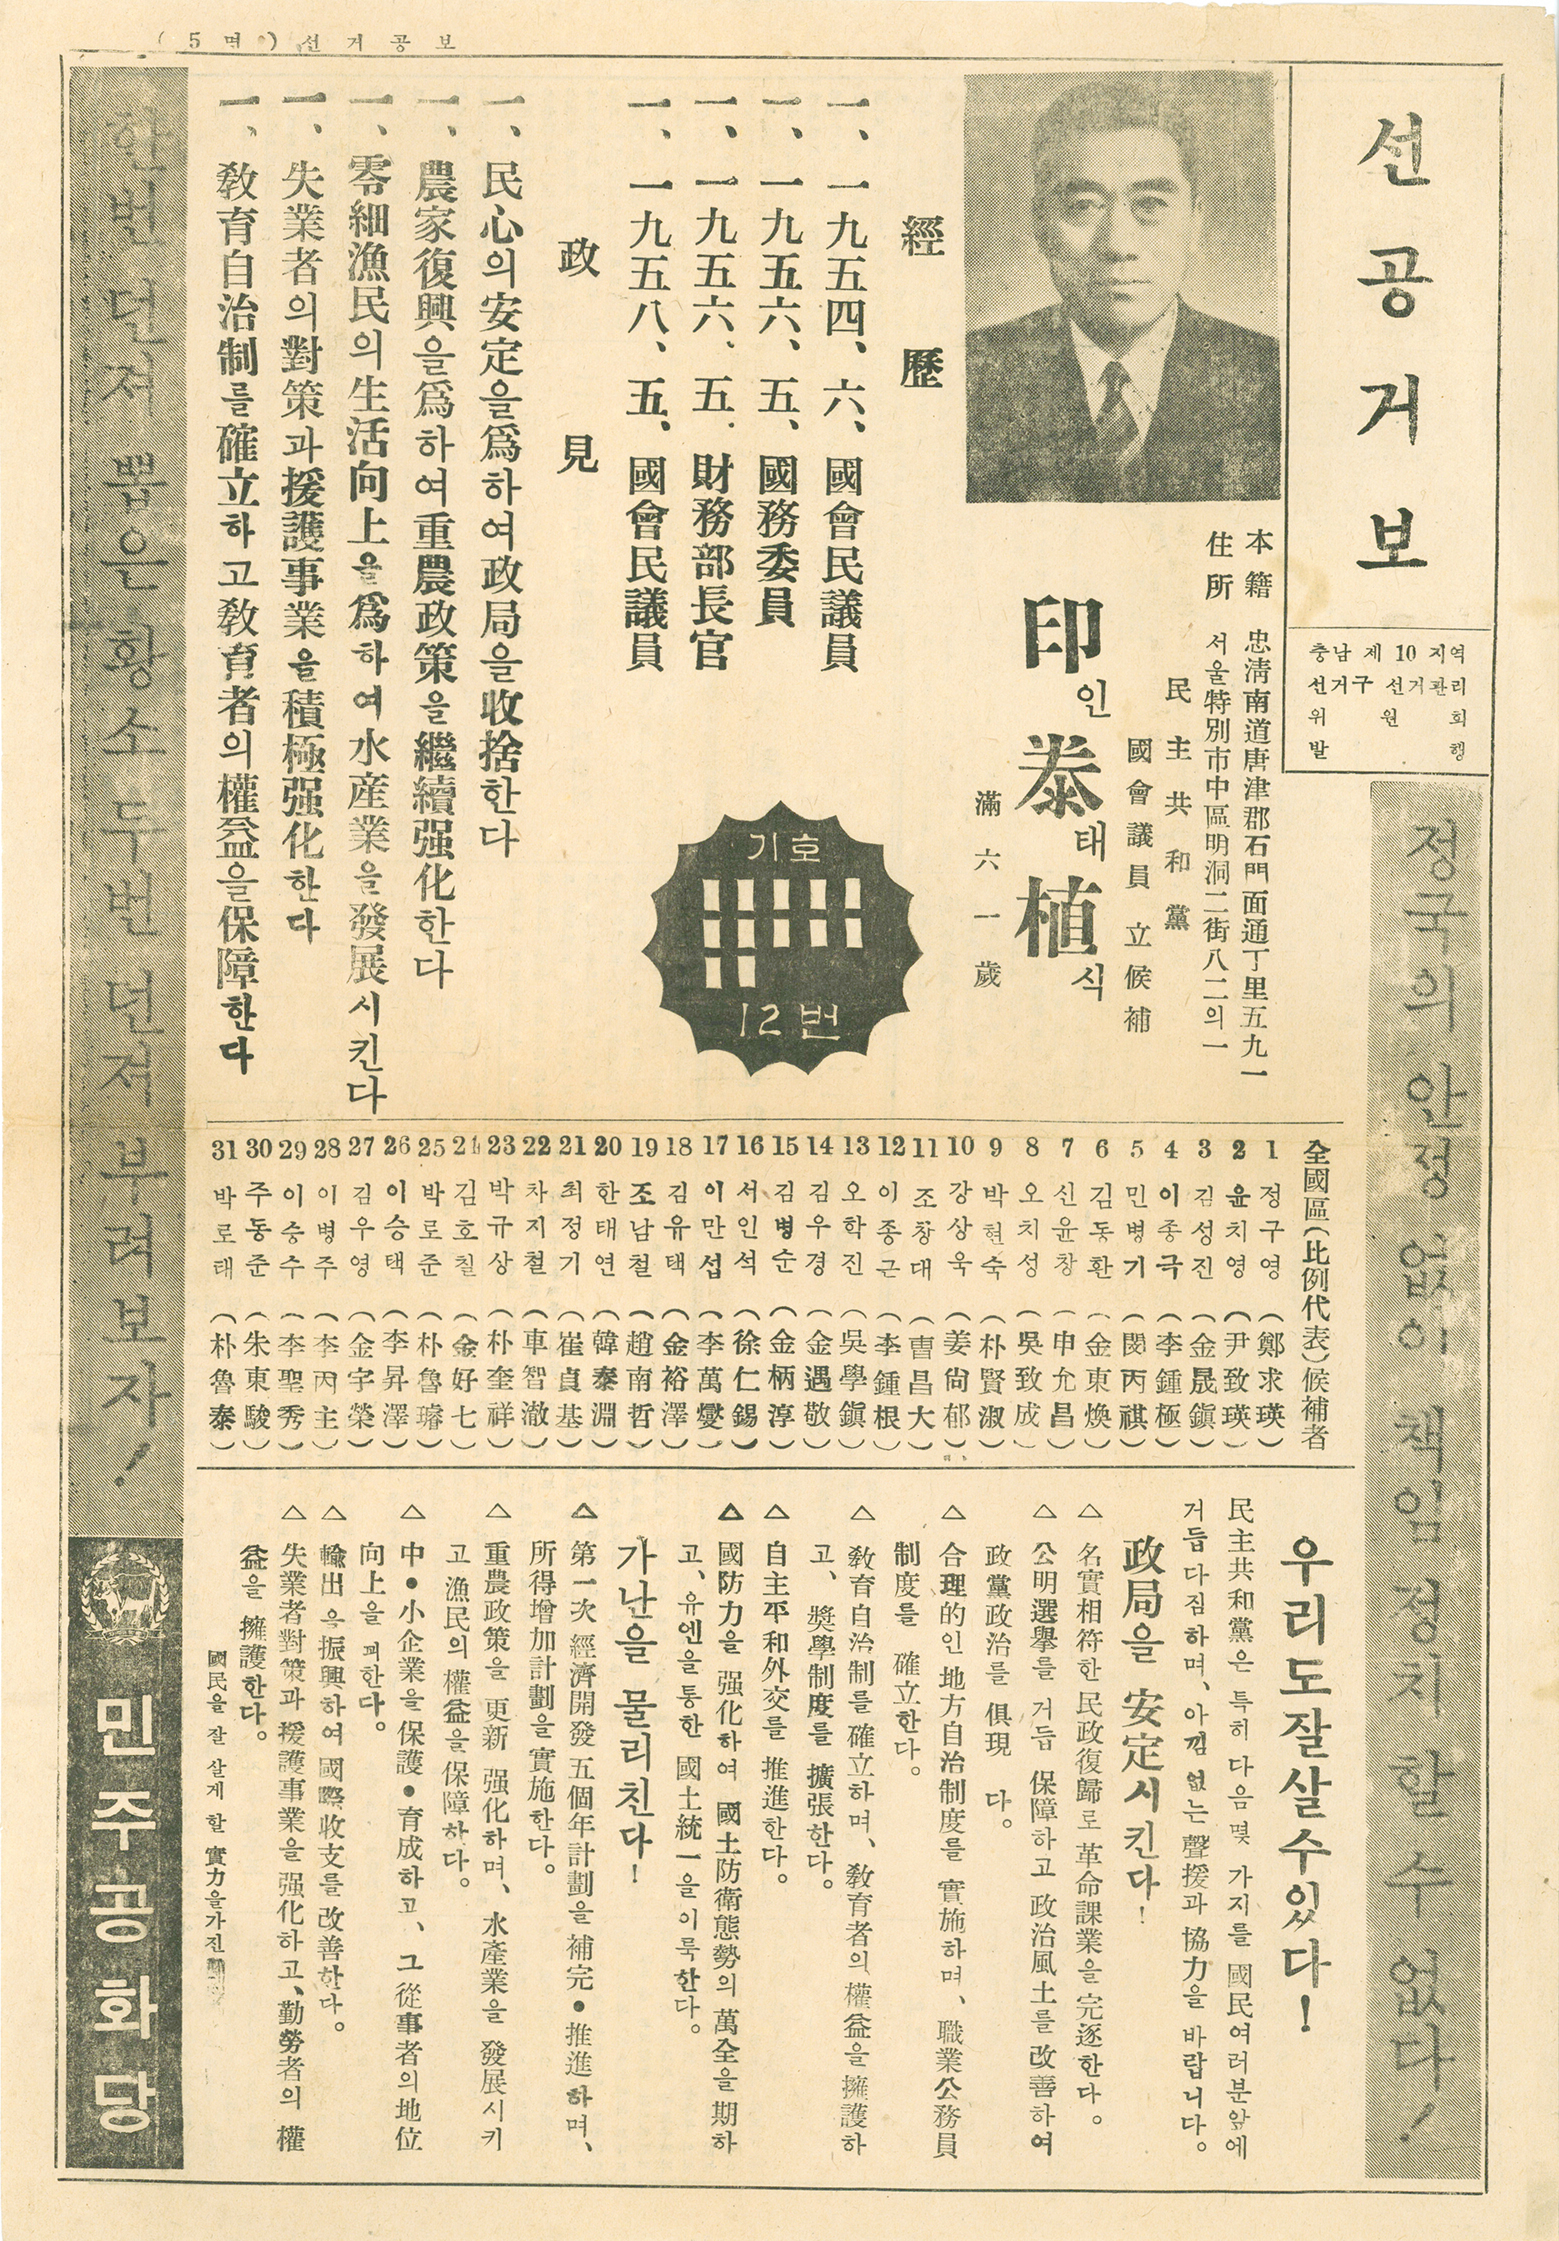 (5면) 선거공보
선거공보
충남 제 10 지역
선거구 선거관리
위원회
발행
정국의 안정 없이 책임 정치 할 수 없다!
本籍 忠淸南道唐津郡石門面通丁里五九一
住所 서울特別市中區明洞二街八二의一
民主共和黨
國會議員立候補
印인泰태植식
滿六一歲
經歷
一、一九五四、六、國會民議員
一、一九五六、五、國務委員
一、一九五六、五、財務部長官
一、一九五八、五、國會民議員
기호
12번
政見
一、民心의安定을爲하여政局을收捨한다
一、農家復興을爲하여重農政策을繼續强化한다
一、零細漁民의生活向上을爲하여水産業을發展시킨다
一、失業者의對策과援護事業을積極强化한다
一、敎育自治制를確立하고敎育者의權益을保障한다
全國區(比例代表)候補者
1 정구영 (鄭求瑛)
2 윤치영 (尹致暎)
3 김성진 (金晟鎭)
4 이종극 (李鍾極)
5 민병기 (閔丙祺)
6 김동환 (金東煥)
7 신윤창 (申允昌)
8 오치성 (吳致成)
9 박현숙 (朴賢淑)
10 강상욱 (姜尙郁)
11 조창대 (曺昌大)
12 이종근 (李鍾根)
13 오학진 (吳學鎭)
14 김우경 (金遇敬)
15 김병순 (金柄淳)
16 서인석 (徐仁錫)
17 이만섭 (李萬燮)
18 김유택 (金裕澤)
19 조남철 (趙南哲)
20 한태연 (韓泰淵)
21 최정기 (崔貞基)
22 차지철 (車智澈)
23 박규상 (朴奎祥)
24 김호칠 (金好七)
25 박로준 (朴魯璿)
26 이승택 (李昇澤)
27 김우영 (金宇榮)
28 이병주 (李丙主)
29 이승수 (李聖秀)
30 주동준 (朱東駿)
31 박로태 (朴魯泰)
우리도잘살수있다!
民主共和黨은 특히 다음몇 가지를 國民여러분앞에
거듭 다짐하며、아낌 없는 聲援과 協力을 바랍니다。
政局을 安定시킨다!
△ 名實相符한 民政復歸로 革命課業을 完逐한다。
△ 公明選擧를 거듭 保障하고 政治風土를 改善하여
政黨政治를 俱現 다。
△ 合理的인 地方自治制度를 實施하며、職業公務員
制度를 確立한다。
△ 敎育自治制를 確立하며、敎育者의 權益을 擁護하
고、奬學制度를 擴張한다。
△ 自主平和外交를 推進한다。
△ 國防力을 强化하여 國土防衛態勢의 萬全을 期하
고、유엔을통한 國土統一을 이룩한다。
가난을 물리친다!
△ 第一次 經濟開發 五個年計劃을 補完•推進하며、
所得增加計劃을 實施한다。
△ 重農政策을 更新 强化하며、水産業을 發展시키
고 漁民의 權益을 保障하다。
△ 中•小企業을 保護•育成하고、그 從事者의 地位
向上을 꾀한다。
△ 輸出을 振興하여 國際收支를 改善한다。
△ 失業者對策과 援護事業을 强化하고、勤勞者의 權
益을 擁護한다。
國民을 잘 살게 할 實力을가진
한번 던져 뽑은 황소 두번 던져 부려보자!
민주공화당